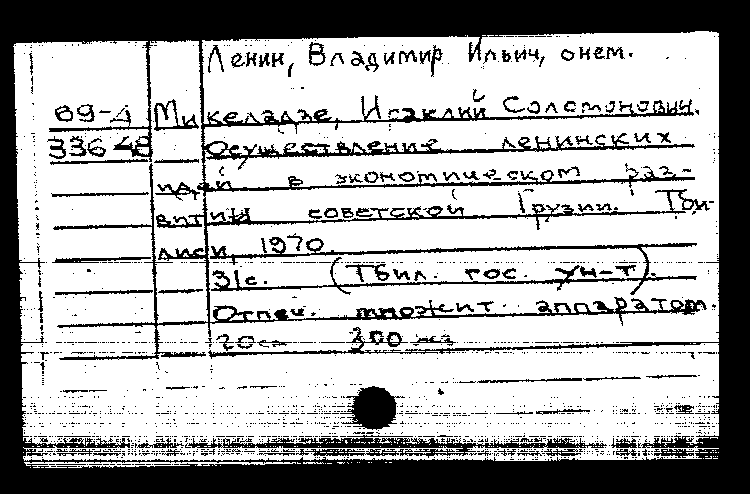 Ленин, Владимир Ильич, о нем.
69-4 Микеладзе, Исаклий Соломонович.
33648 Осуществление ленинских
идей в экономическом раз-
витии советской Грузии. Тби-
лиси, 1970
31с. (Тбил. гос. ун-т).
Отпеч. множит. аппаратом.
20см 300 экз